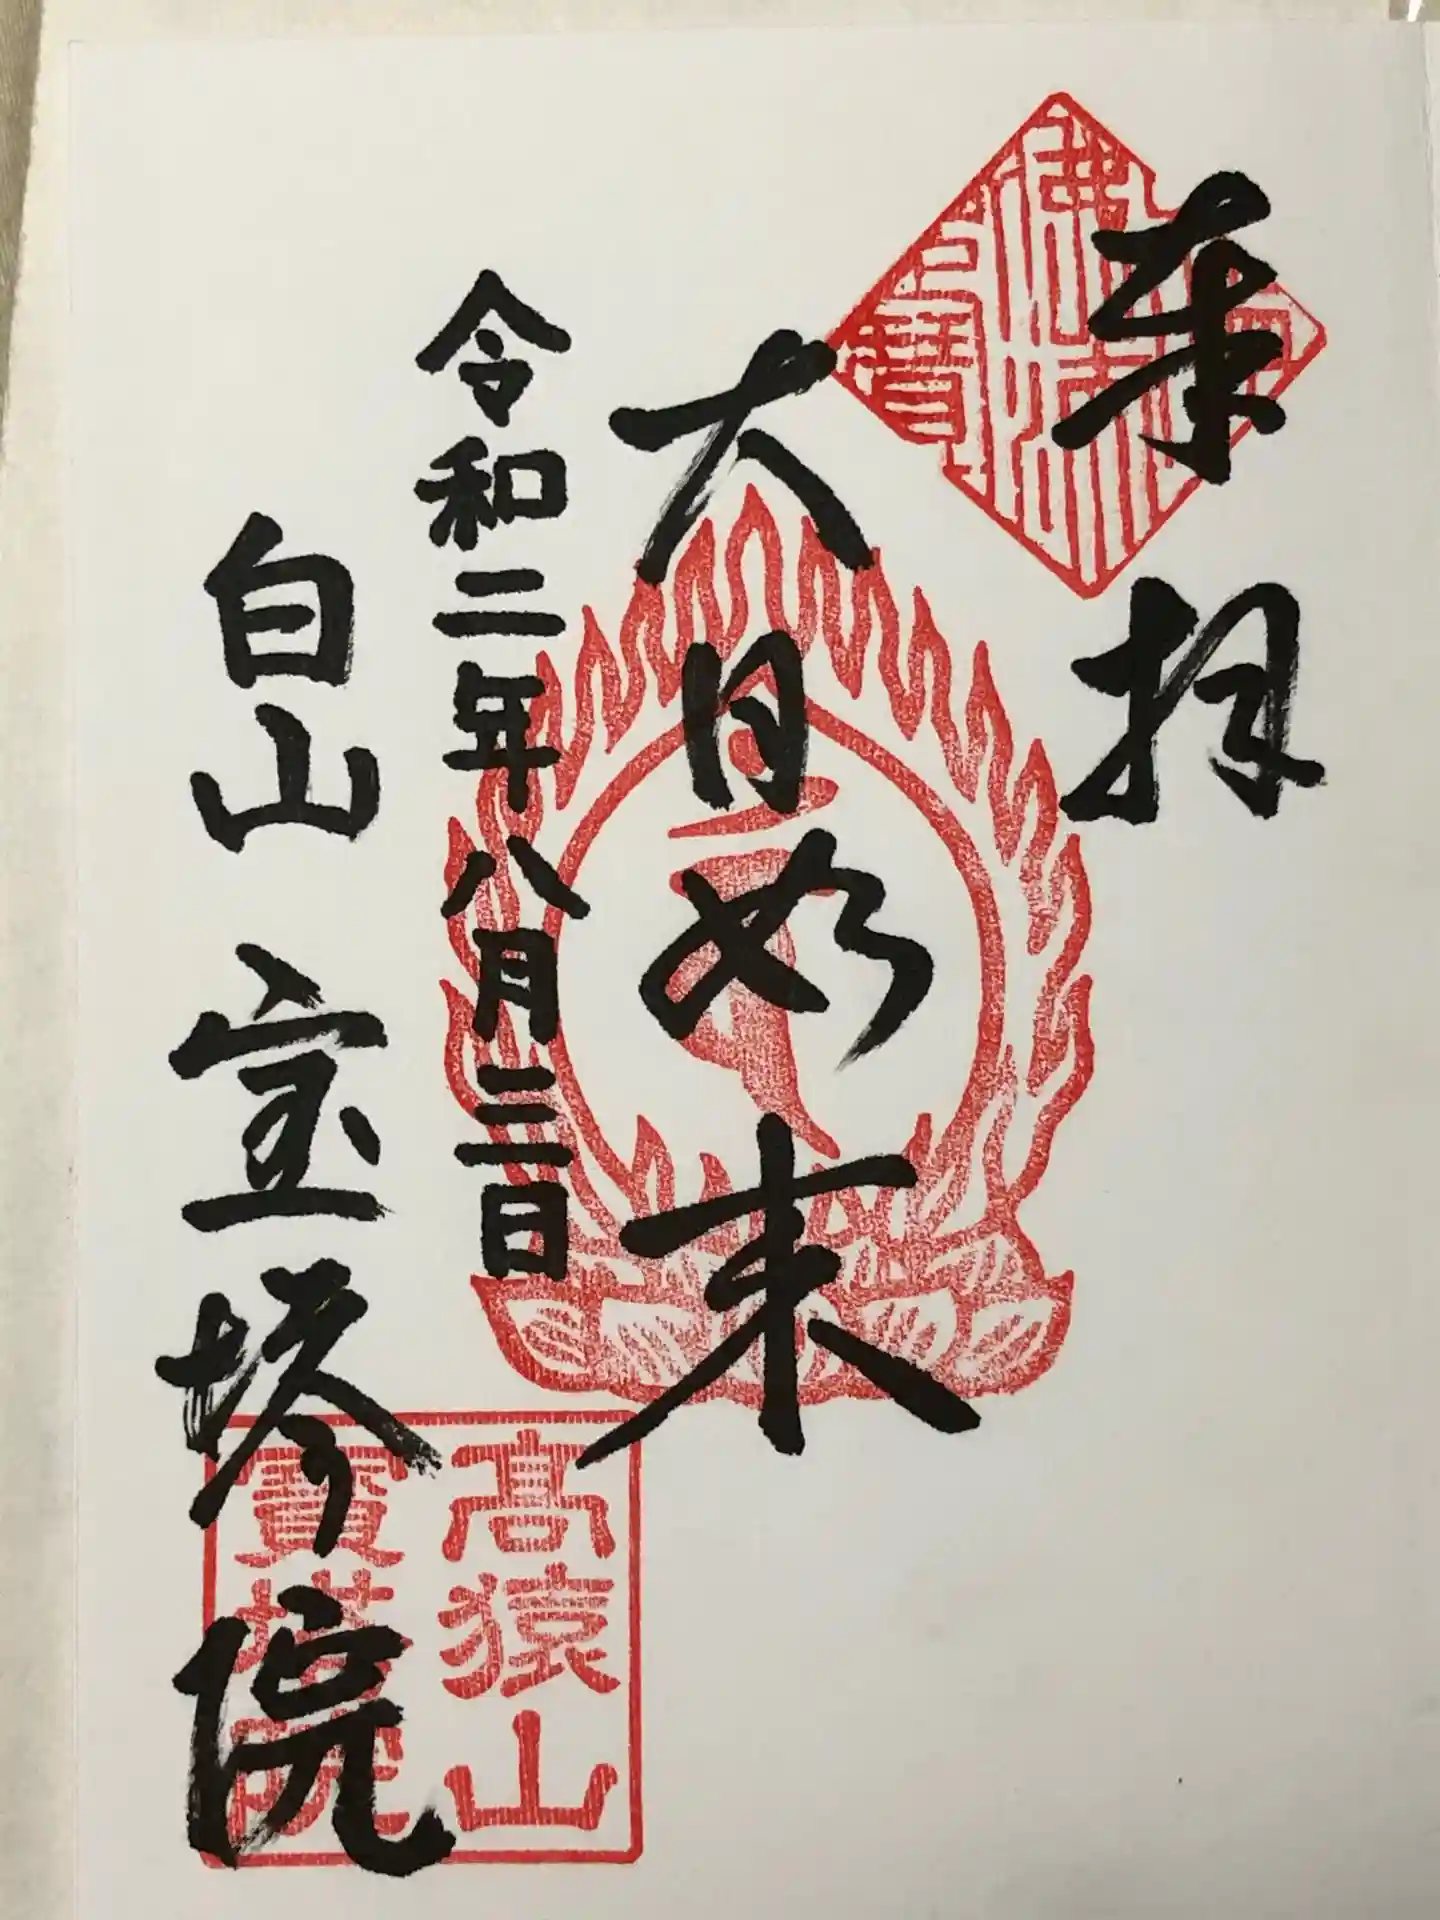 奉拝
大日如来
令和二年八月三日
白山宝塔院
高猿山
寶塔院